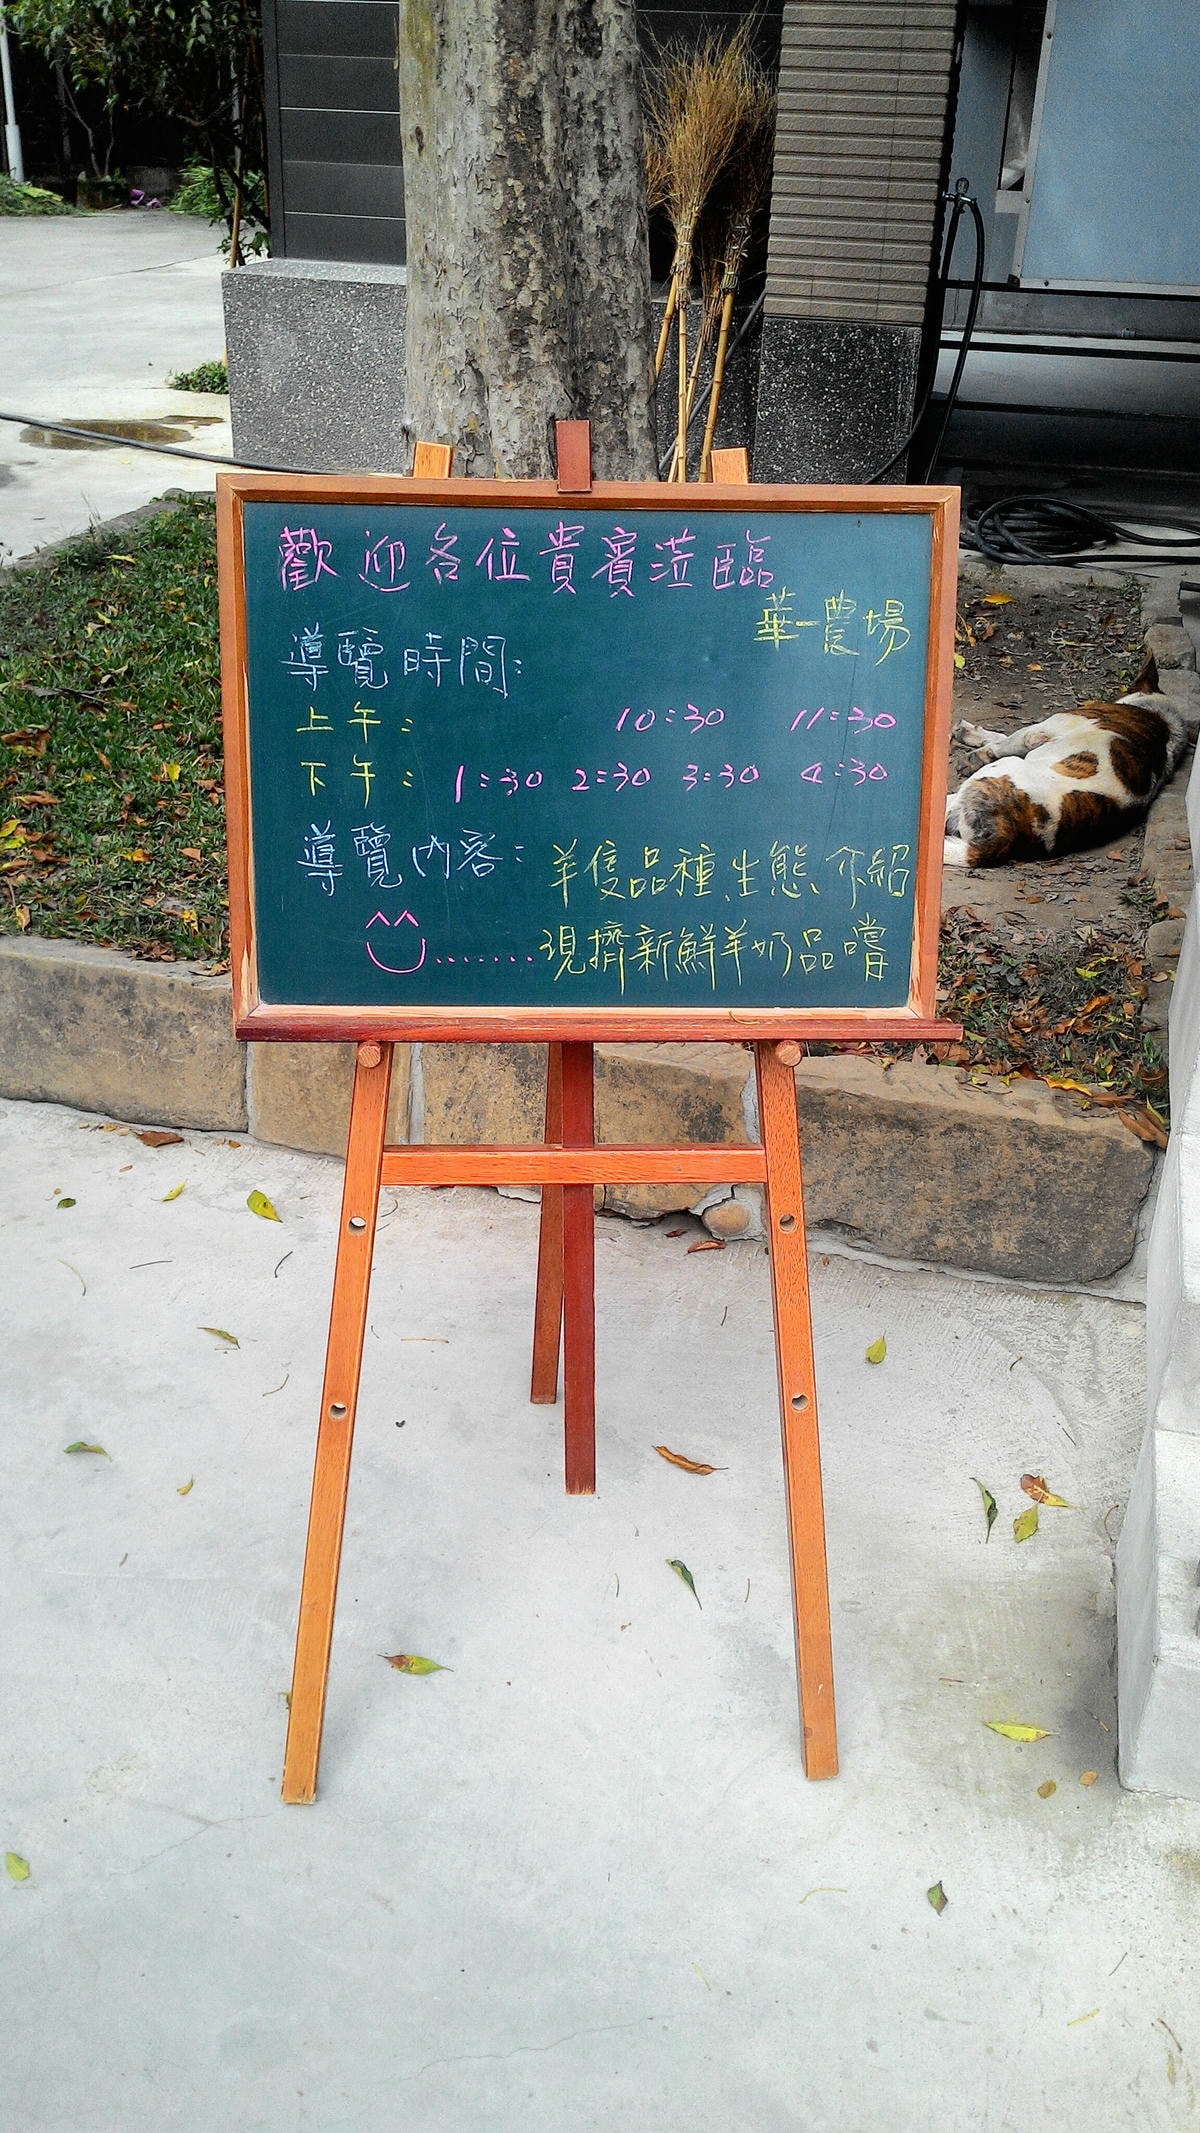 歡迎各位貴賓蒞臨
華一農場
導覽時間:
上午: 10:30 11:30
下午: 1:30 2:30 3:30 4:30
導覽內容: 羊隻品種、生態、介紹
.......現擠新鮮羊奶品嚐